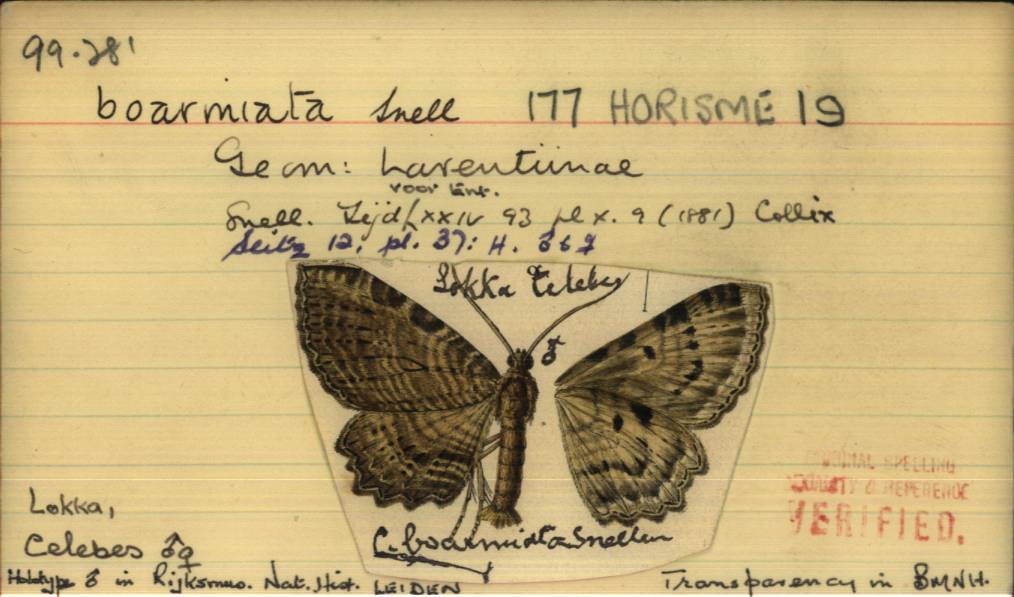 99.281
boarmiata Snell 177 HORISME 19
Geom: Larentiinae
voor Ent.
Snell. Tijds XXIV 93 pl x. 9 (1881) Collix
Seitz 12: pl. 37: H. ♂ & ♀
Lokka Celebes
♂
C. boarmiata Snellen
ORIGINAL SPELLING
LOCALITY & REFERENCE
VERIFIED.
Lokka,
Celebes ♂♀
Holotype ♂ in Rijksmus. Nat. Hist. LEIDEN
Transparency in BMNH.